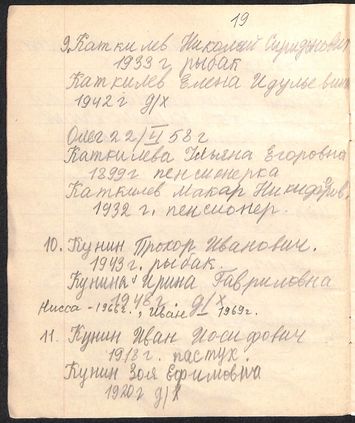 19
9. Каткилев Николай Спиридонович
1933 г рыбак
Каткилев Елена Идульевна
1942 г д/х
Олег 22/VI 58 г
Каткилева Ульяна Егоровна
1899 г пенсионерка
Каткилев Макар Никифоров.
1932 г. пенсионер.
10. Кунин Прохор Иванович.
1943 г. рыбак.
Кунина Ирина Гавриловна
1948 г. д/х
Нисса - 1966 г., Иван - 1969 г.
11. Кунин Иван Иосифович
1918 г. пастух.
Кунин Зоя Ефимовна
1920 г д/х